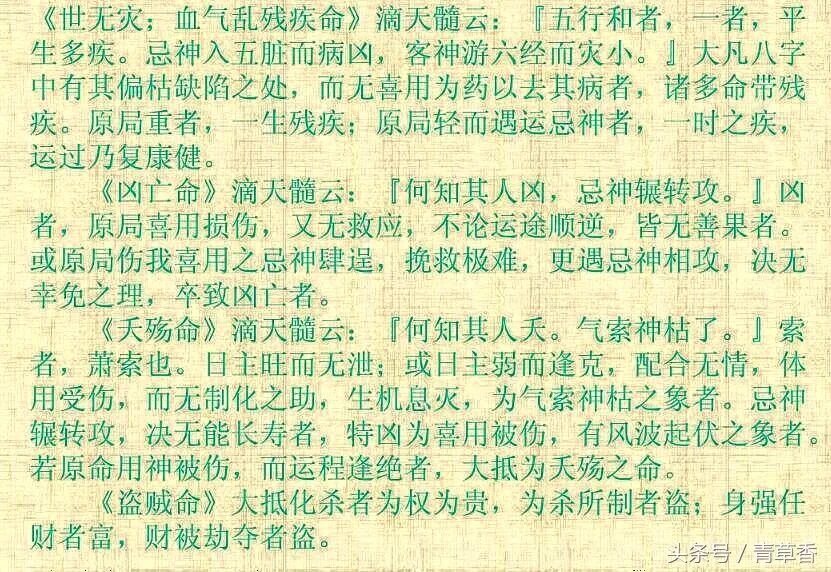 《世无灾；血气乱残疾命》滴天髓云：『五行和者，一者，平
生多疾。忌神入五脏而病凶，客神游六经而灾小。』大凡八字
中有其偏枯缺陷之处，而无喜用为药以去其病者，诸多命带残
疾。原局重者，一生残疾；原局轻而遇运忌神者，一时之疾，
运过乃复康健。
《凶亡命》滴天髓云：『何知其人凶，忌神辗转攻。』凶
者，原局喜用损伤，又无救应，不论运途顺逆，皆无善果者。
或原局伤我喜用之忌神肆逞，挽救极难，更遇忌神相攻，决无
幸免之理，卒致凶亡者。
《夭殇命》滴天髓云：『何知其人夭。气索神枯了。』索
者，萧索也。日主旺而无泄；或日主弱而逢克，配合无情，体
用受伤，而无制化之助，生机息灭，为气索神枯之象者。忌神
辗转攻，决无能长寿者，特凶为喜用被伤，有风波起伏之象者。
若原命用神被伤，而运程逢绝者，大抵为夭殇之命。
《盗贼命》大抵化杀者为权为贵，为杀所制者盗；身强任
财者富，财被劫夺者盗。
头条号 / 青草香